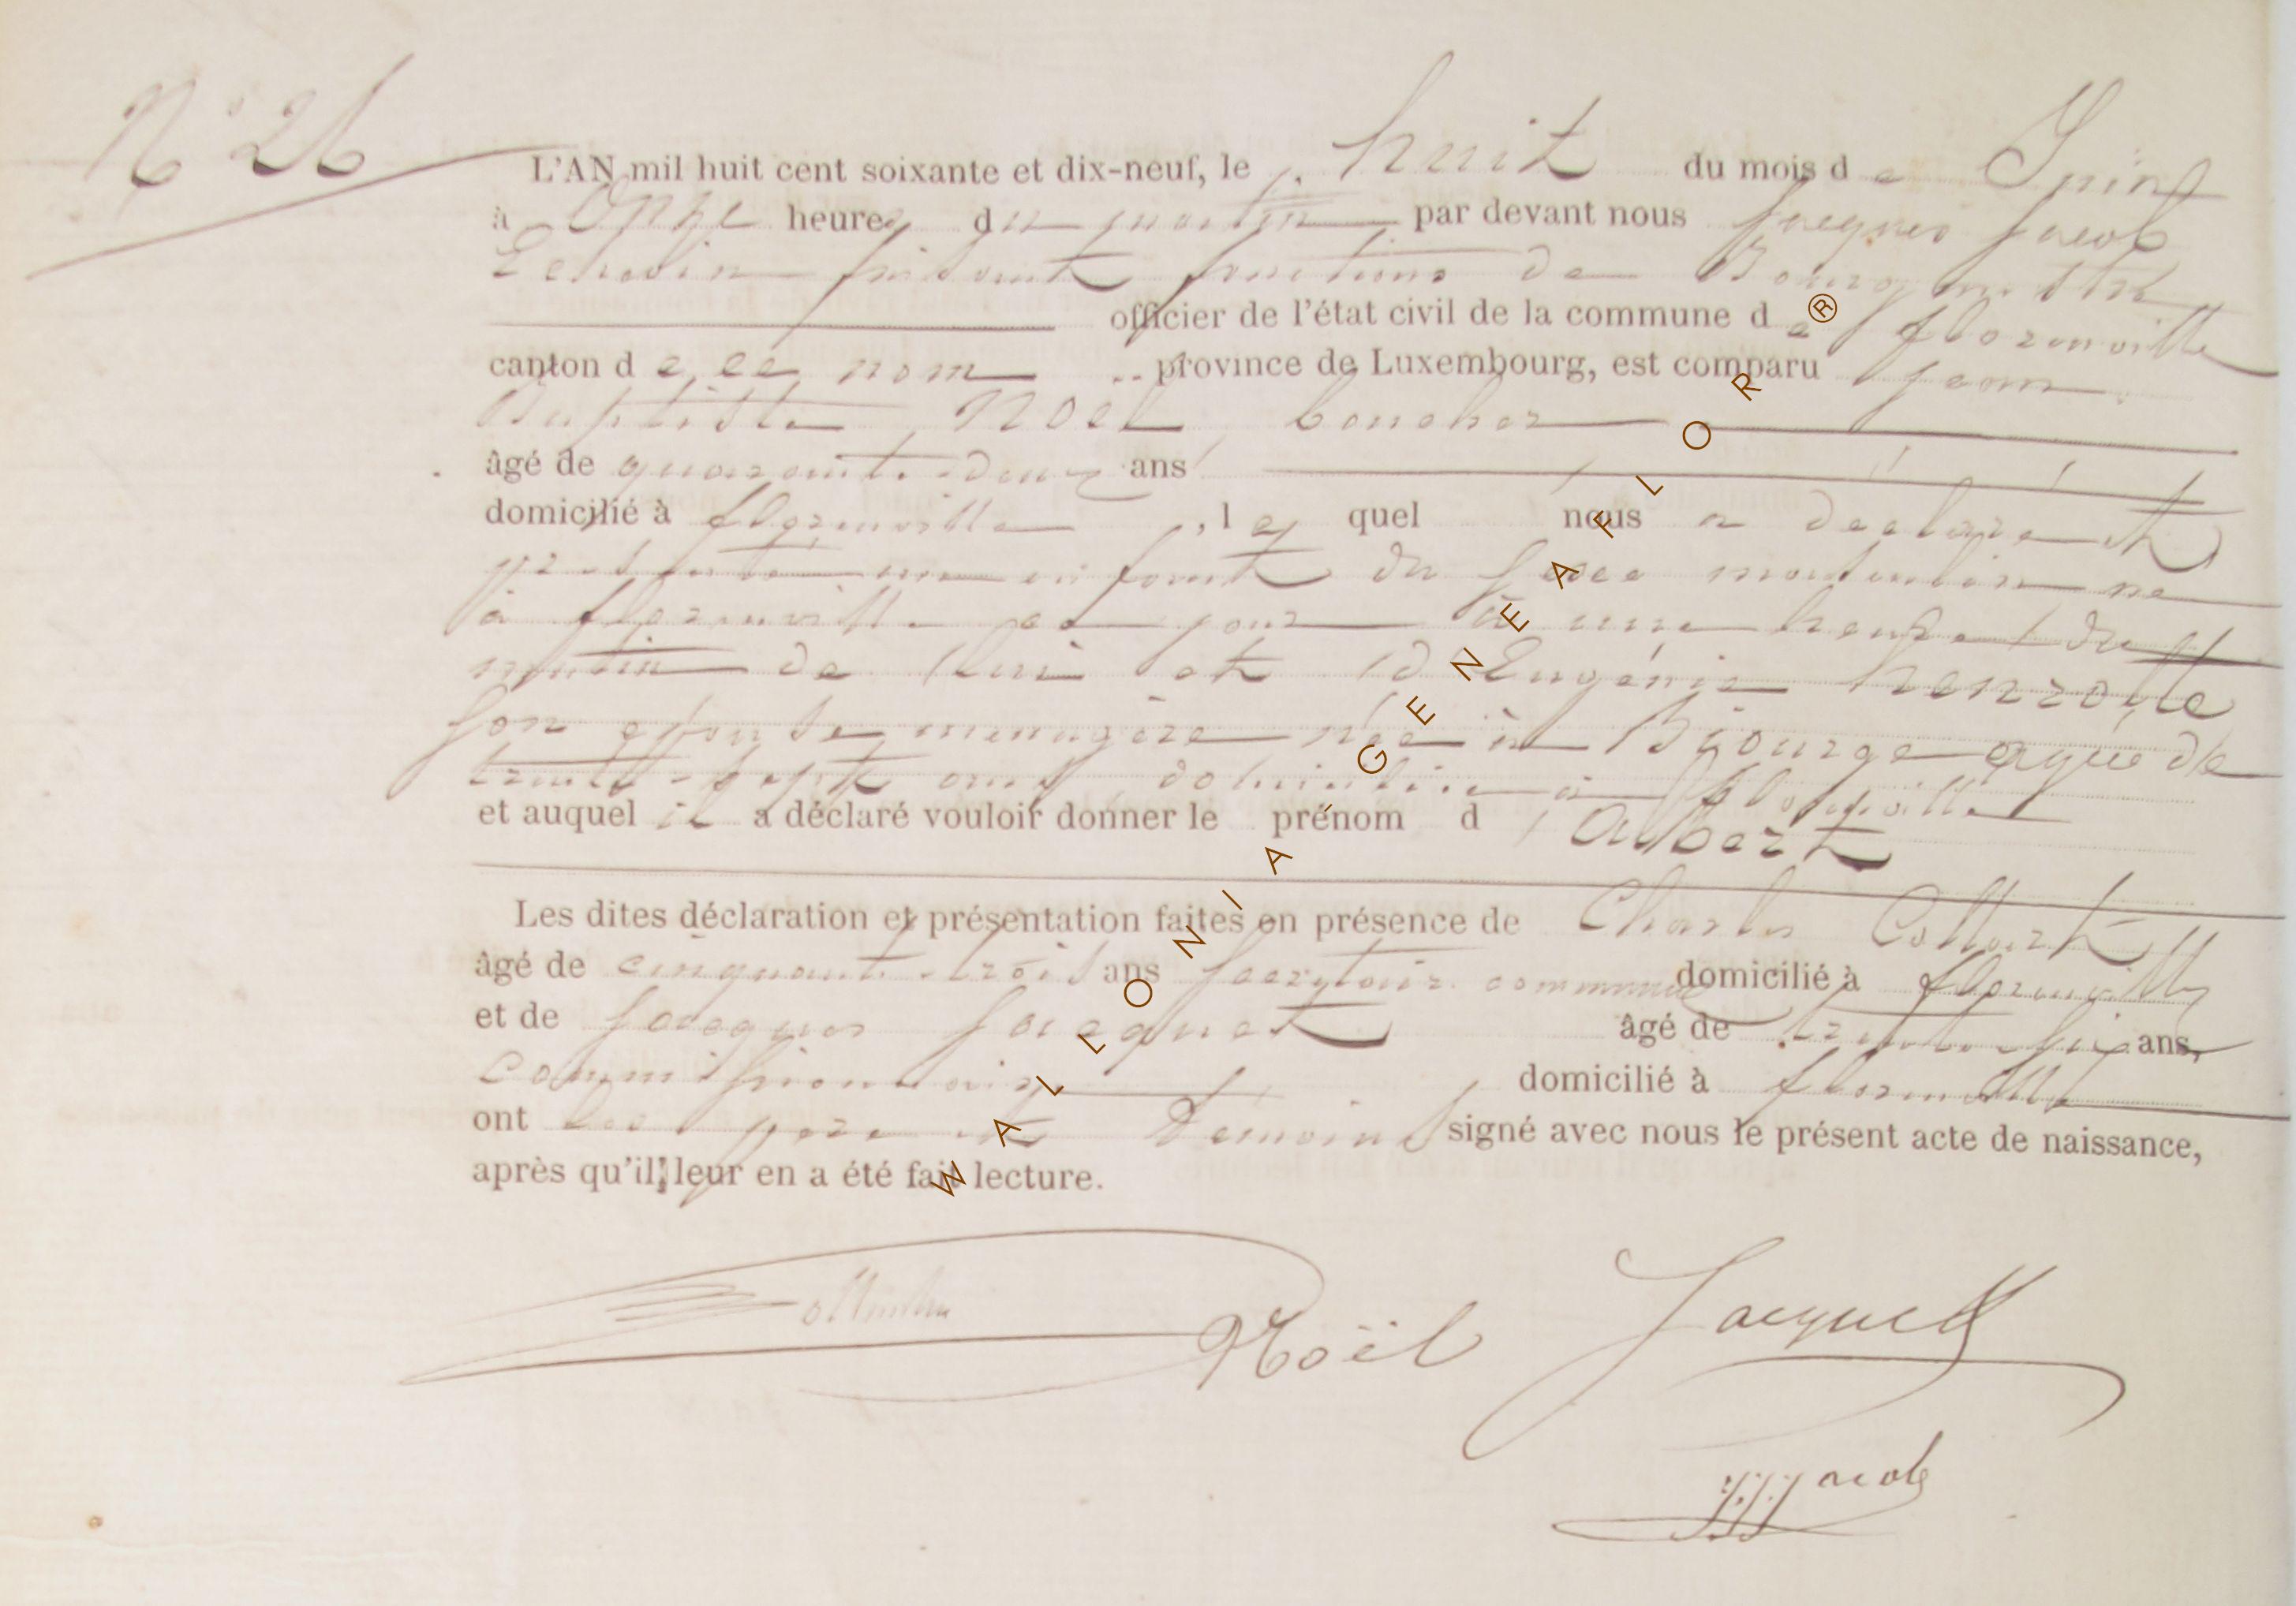 N° 26
L'AN mil huit cent soixante et dix-neuf, le huit du mois de Juin
à Onze heures du matin par devant nous Jacques Jacob
Echevin faisant fonctions de Bourgmestre
officier de l'état civil de la commune de florenville
canton de ce nom province de Luxembourg, est comparu Jean
Baptiste Noël boucher
âgé de quarante-deux ans
domicilié à florenville, lequel nous a déclaré et
présenté un enfant du sexe masculin né
à florenville ce jour à une heure du
matin de lui et d'Eugénie henrotte
son épouse ménagère née à Bjourge agée de
trente-sept ans domiciliée à florenville
et auquel il a déclaré vouloir donner le prénom d'Albert
Les dites déclaration et présentation faites en présence de Charles Collart
âgé de cinquante-trois ans secrétaire communal domicilié à florenville
et de Jacques Jacquet âgé de trente-six ans,
commissionnaire domicilié à florenville
ont les père et témoins signé avec nous le présent acte de naissance,
après qu'il leur en a été fait lecture.
Noël Jacquet
JJJacob
WALLONIA GENEAFLOR ®